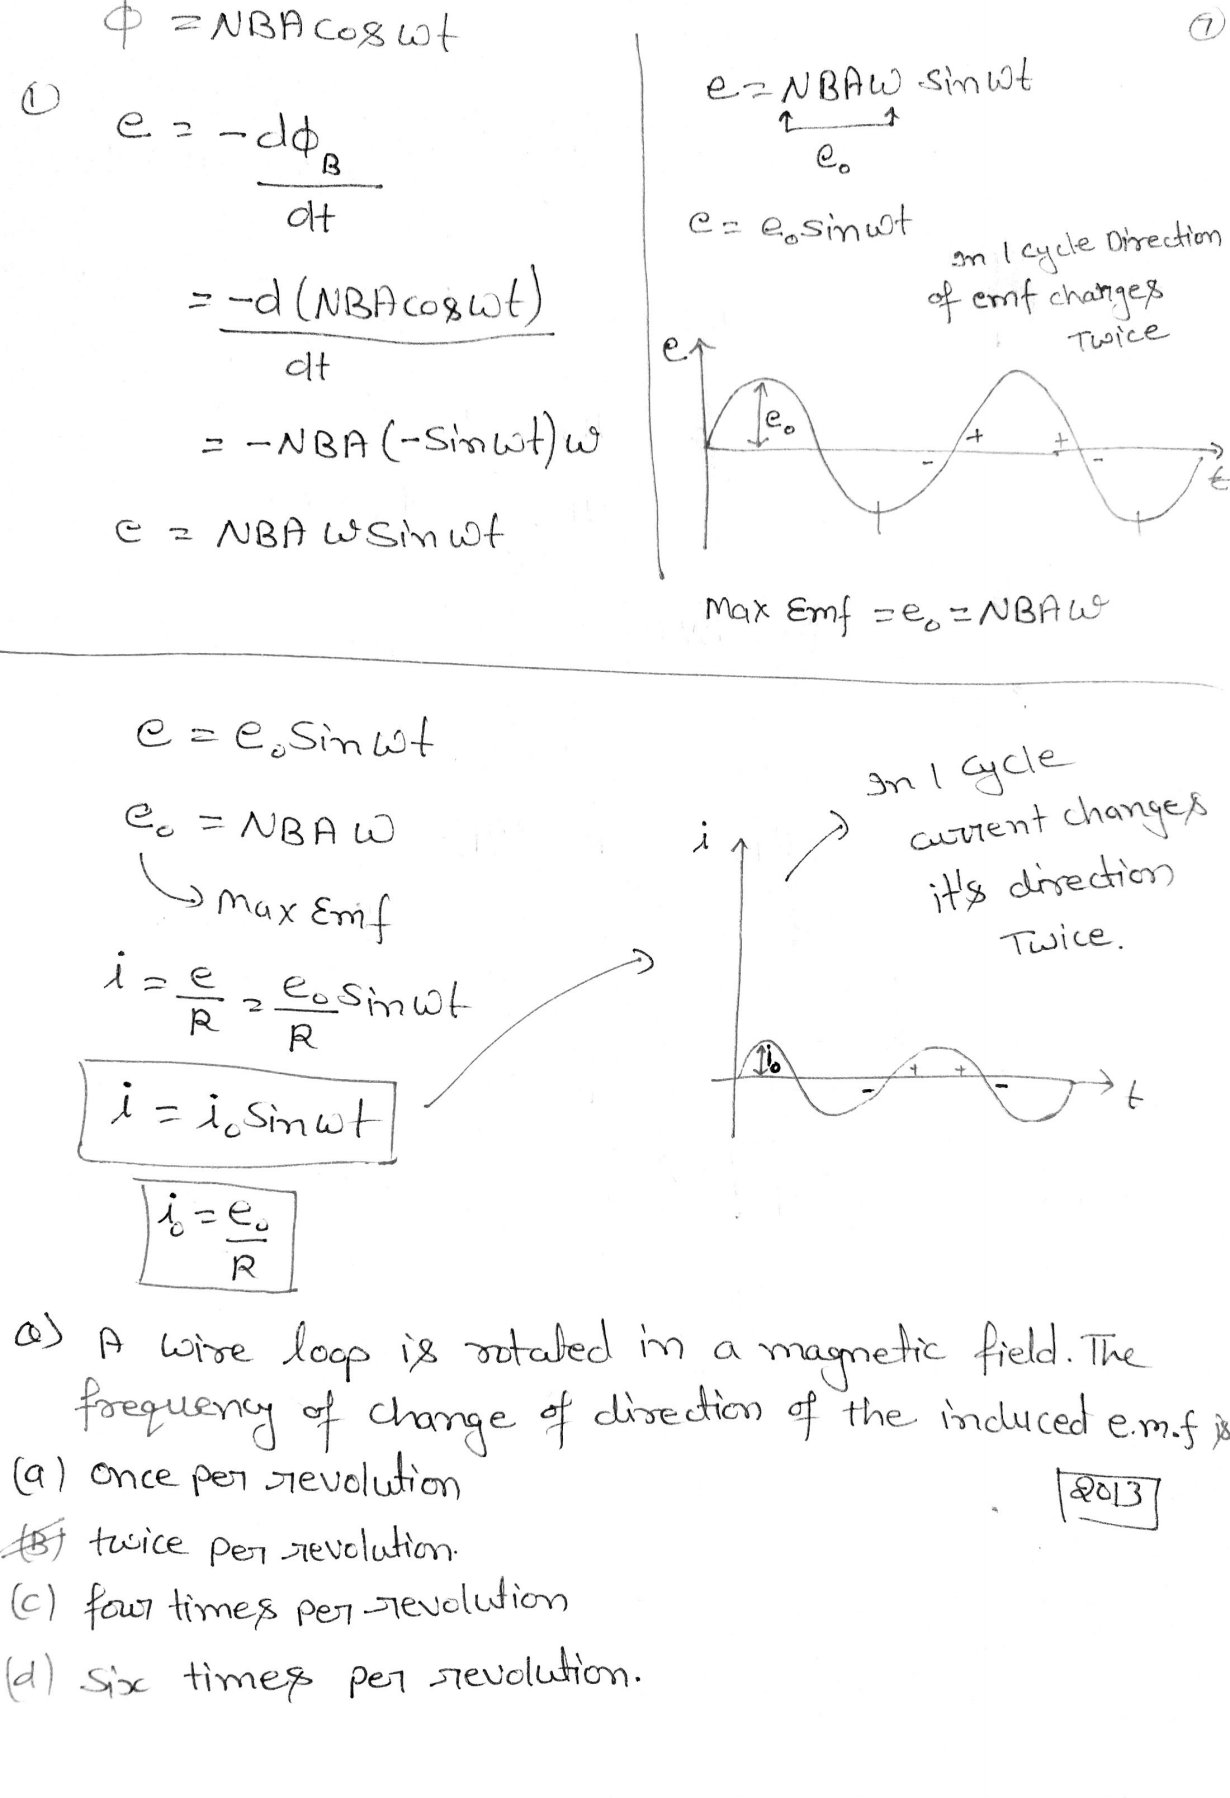 7
ϕ = NBA cos ωt
①
e = -dϕ_B
dt
= -d (NBA cos ωt)
dt
= -NBA (-Sin ωt) ω
e = NBA ω Sin ωt
e = NBAω Sin ωt
e₀
e = e₀ sin ωt
In 1 cycle Direction
of emf changes
Twice
e
e₀
+ + - -
t
Max Emf = e₀ = NBAω
e = e₀ Sin ωt
e₀ = NBA ω
Max Emf
i = e/R = e₀/R Sin ωt
i = i₀ Sin ωt
i₀ = e₀/R
In 1 Cycle
current changes
it's direction
Twice.
i
i₀
- + + -
t
Q) A wire loop is rotated in a magnetic field. The
frequency of change of direction of the induced e.m.f is
(a) once per revolution
2013
(B) twice per revolution.
(c) four times per revolution
(d) Six times per revolution.